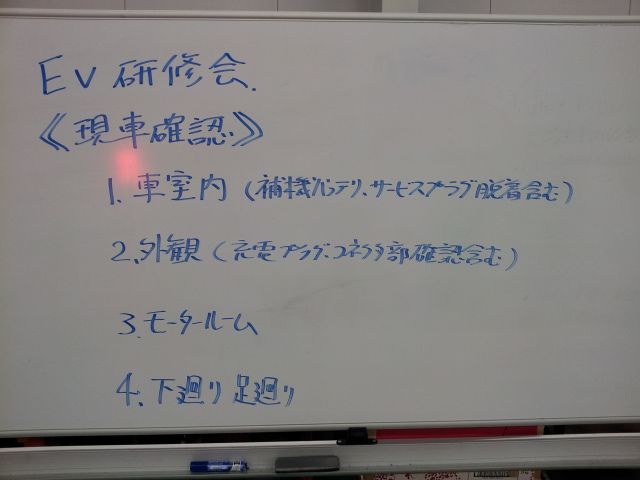 EV 研修会.
《現車確認》
1. 車室内 (補機バッテリ、サービスプラグ脱着含む)
2. 外観 (充電プラグ、コネクタ部確認含む)
3. モータールーム
4. 下廻り 足廻り